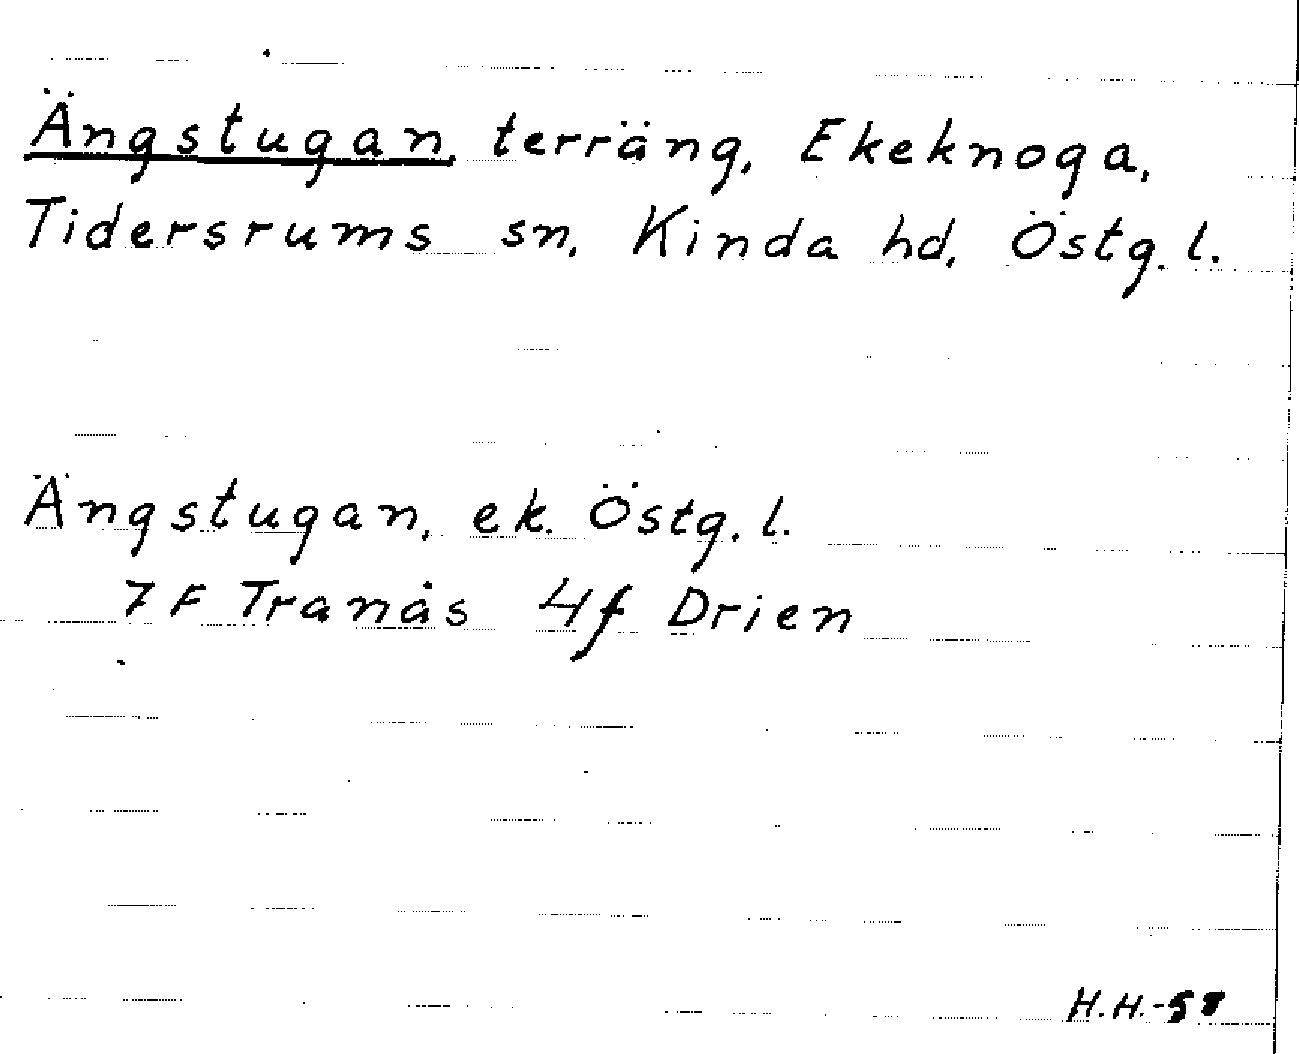 Ängstugan, terräng, Ekeknoga,
Tidersrums sn, Kinda hd, Östg. l.
Ängstugan, ek. Östg. l.
7 F Tranås 4f Drien
H.H.-58